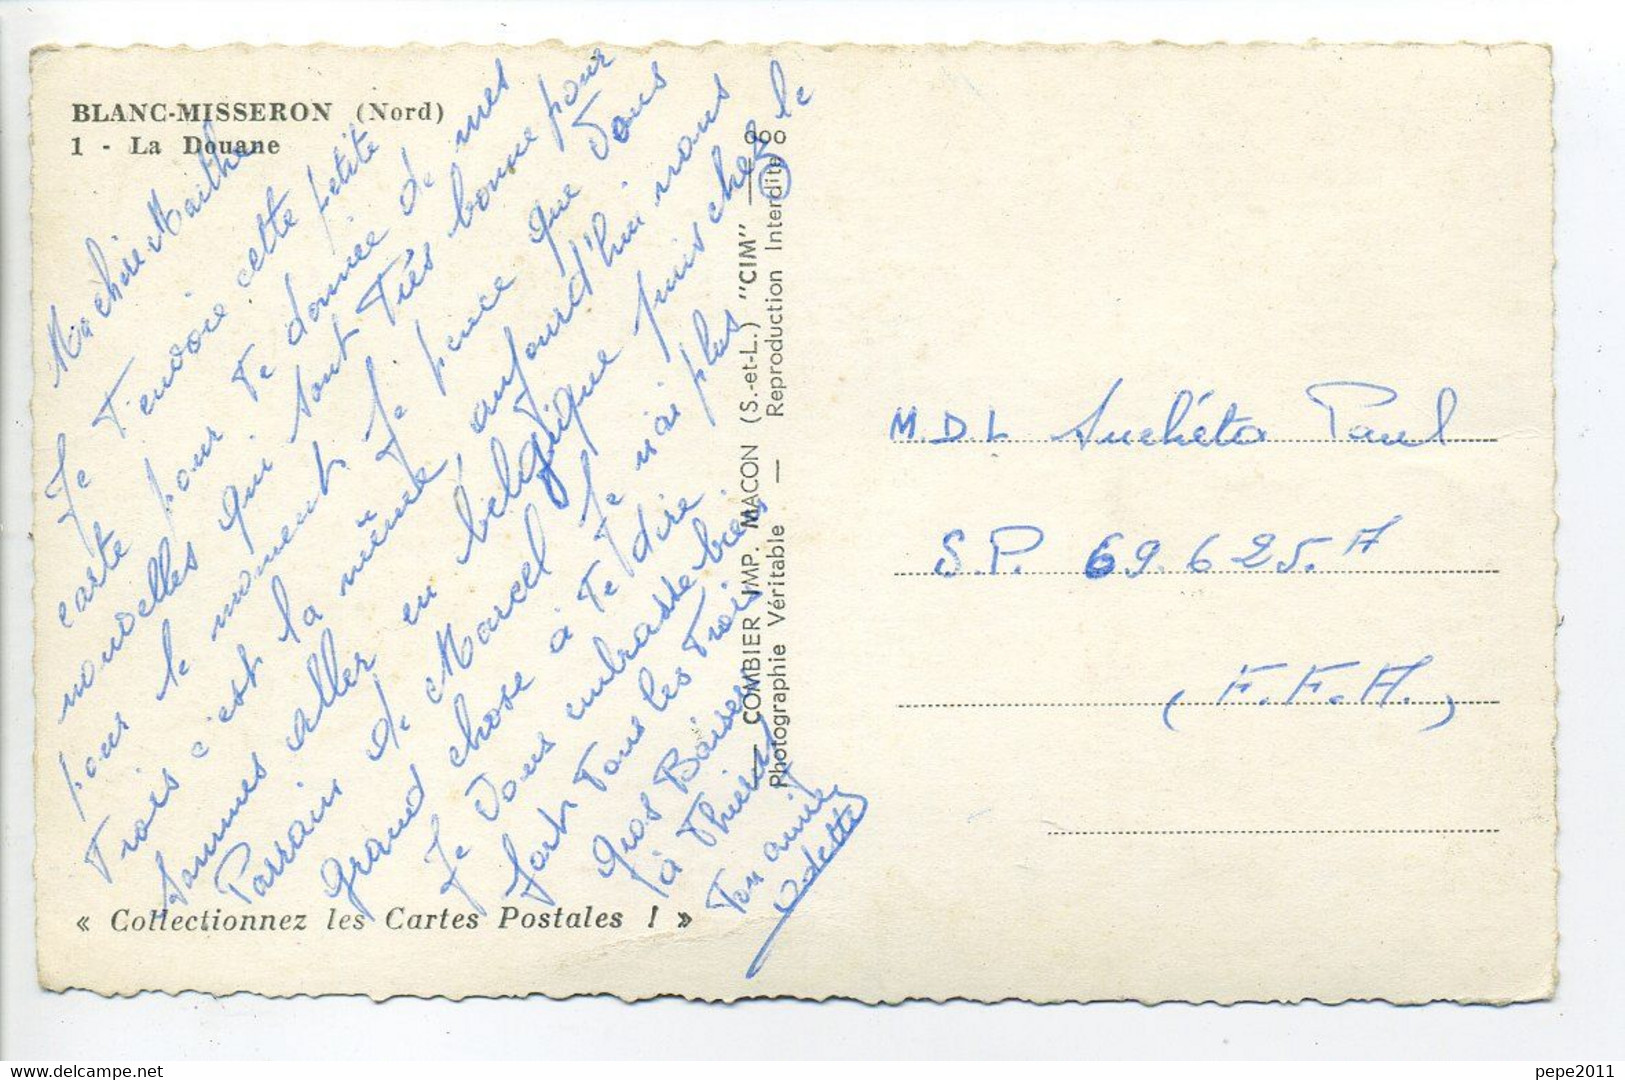 BLANC-MISSERON (Nord)
1 - La Douane
Ma chère Maithe
Je T'envoie cette petite
carte pour Te donnée de mes
nouvelles qui sont Très bonne pour
pour le moment Je pence que Vous
Trois c'est la même, aujourd'hui nous
sommes aller en bélgique puis chez le
Parrain de Marcel Je n'ai plus
grand chose à Te dire
Je Vous embrasse bien
fort Tous les Trois
Gros Baisers
à Thierry
Ton amie
Odette
« Collectionnez les Cartes Postales ! »
— COMBIER IMP. MACON (S.-et-L.) "CIM" —
Photographie Véritable — Reproduction Interdite
M.D.L Suchéto Paul
S.P. 69.625.A
(F.F.A.)
delcampe.net
pepe2011